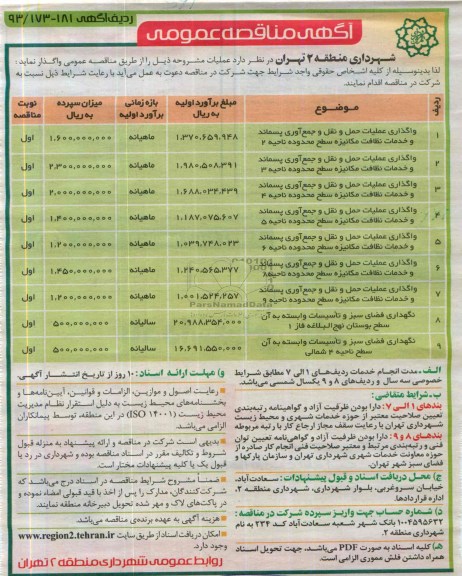 ردیف آگهی ۱۸۱-۹۳/۱۷۳
آگهی مناقصه عمومی
شهرداری منطقه ۲ تهران در نظر دارد عملیات مشروحه ذیل را از طریق مناقصه عمومی واگذار نماید؛
لذا بدینوسیله از کلیه اشخاص حقوقی واجد شرایط جهت شرکت در مناقصه دعوت به عمل می‌آید با رعایت شرایط ذیل نسبت به
شرکت در مناقصه اقدام نمایند.
ردیف موضوع مبلغ برآورد اولیه به ریال بازه زمانی برآورد اولیه میزان سپرده به ریال نوبت مناقصه
۱ واگذاری عملیات حمل و نقل و جمع‌آوری پسماند و خدمات نظافت مکانیزه سطح محدوده ناحیه ۲ ۱.۳۷۰.۶۵۹.۹۴۸ ماهیانه ۱.۶۰۰.۰۰۰.۰۰۰ اول
۲ واگذاری عملیات حمل و نقل و جمع‌آوری پسماند و خدمات نظافت مکانیزه سطح محدوده ناحیه ۳ ۱.۹۸۰.۵۰۸.۳۹۱ ماهیانه ۲.۳۰۰.۰۰۰.۰۰۰ اول
۳ واگذاری عملیات حمل و نقل و جمع‌آوری پسماند و خدمات نظافت مکانیزه سطح محدوده ناحیه ۴ ۱.۶۸۸.۰۳۴.۴۳۹ ماهیانه ۲.۰۰۰.۰۰۰.۰۰۰ اول
۴ واگذاری عملیات حمل و نقل و جمع‌آوری پسماند و خدمات نظافت مکانیزه سطح محدوده ناحیه ۵ ۱.۱۸۷.۰۷۵.۶۰۷ ماهیانه ۱.۴۰۰.۰۰۰.۰۰۰ اول
۵ واگذاری عملیات حمل و نقل و جمع‌آوری پسماند و خدمات نظافت مکانیزه سطح محدوده ناحیه ۶ ۱.۰۳۹.۷۴۸.۰۲۳ ماهیانه ۱.۲۰۰.۰۰۰.۰۰۰ اول
۶ واگذاری عملیات حمل و نقل و جمع‌آوری پسماند و خدمات نظافت مکانیزه سطح محدوده ناحیه ۸ ۱.۲۴۰.۵۶۵.۳۷۷ ماهیانه ۱.۴۵۰.۰۰۰.۰۰۰ اول
۷ واگذاری عملیات حمل و نقل و جمع‌آوری پسماند و خدمات نظافت مکانیزه سطح محدوده ناحیه ۹ ۱.۰۰۱.۵۲۴.۲۵۷ ماهیانه ۱.۲۰۰.۰۰۰.۰۰۰ اول
۸ نگهداری فضای سبز و تاسیسات وابسته به آن سطح بوستان نهج‌البلاغه فاز ۱ ۲۰.۹۸۸.۳۵۴.۰۰۰ سالیانه ۵۰۰.۰۰۰.۰۰۰ اول
۹ نگهداری فضای سبز و تاسیسات وابسته به آن سطح ناحیه ۲ شمالی ۱۶.۶۹۱.۵۵۰.۰۰۰ سالیانه ۵۰۰.۰۰۰.۰۰۰ اول
الف- مدت انجام خدمات ردیف‌های ۱ الی ۷ مطابق شرایط
خصوصی سه سال و ردیف‌های ۸ و ۹ یکسال شمسی می‌باشد.
ب- شرایط متقاضی:
بندهای ۱ الی ۷: دارا بودن ظرفیت آزاد و گواهینامه رتبه‌بندی
تعیین صلاحیت معتبر از حوزه خدمات شهری و محیط زیست
شهرداری تهران با رعایت سقف مجاز ارجاع کار با رتبه مربوطه
بندهای ۸ و ۹: دارا بودن ظرفیت آزاد و گواهی‌نامه تعیین توان
فنی و رتبه‌بندی مرتبط و معتبر صلاحیت فنی انجام کار صادره از
حوزه معاونت خدمات شهری شهرداری تهران و سازمان پارکها و
فضای سبز شهر تهران.
ج) محل دریافت اسناد و قبول پیشنهادات: سعادت‌آباد،
خیابان سروغربی، بلوار شهرداری، شهرداری منطقه ۲،
اداره قراردادها.
د) شماره حساب جهت واریز سپرده شرکت در مناقصه:
۱۰۰۴۵۹۵۶۳۲ بانک شهر شعبه سعادت‌آباد کد ۲۳۴ به نام
شهرداری منطقه ۲.
ه) کلیه اسناد به صورت PDF می‌باشد، جهت تحویل اسناد
همراه داشتن فلش مموری الزامی است.
و) مهلت ارائه اسناد: ۱۰ روز از تاریخ انتشار آگهی.
رعایت اصول و موازین، الزامات و قوانین، آیین‌نامه‌ها و
بخشنامه‌های محیط زیست به دلیل استقرار نظام مدیریت
محیط زیست (ISO ۱۴۰۰۱) در این منطقه، توسط پیمانکاران
الزامی می‌باشد.
بدیهی است شرکت در مناقصه و ارائه پیشنهاد به منزله قبول
شروط و تکالیف مقرر در اسناد مناقصه بوده و شهرداری در رد یا
قبول یک یا کلیه پیشنهادات مختار است.
ضمناً مشروح شرایط مناقصه در اسناد درج می‌باشد که
شرکت‌کنندگان، مدارک را پس از اخذ با قید قبولی امضاء نموده و
در پاکت‌های لاک و مهر شده تحویل دبیرخانه منطقه نمایند.
هزینه آگهی به عهده برنده‌ی مناقصه می‌باشد.
امکان دریافت اسناد از طریق سایت www.region2.tehran.ir
وجود دارد.
روابط عمومی شهرداری منطقه ۲ تهران